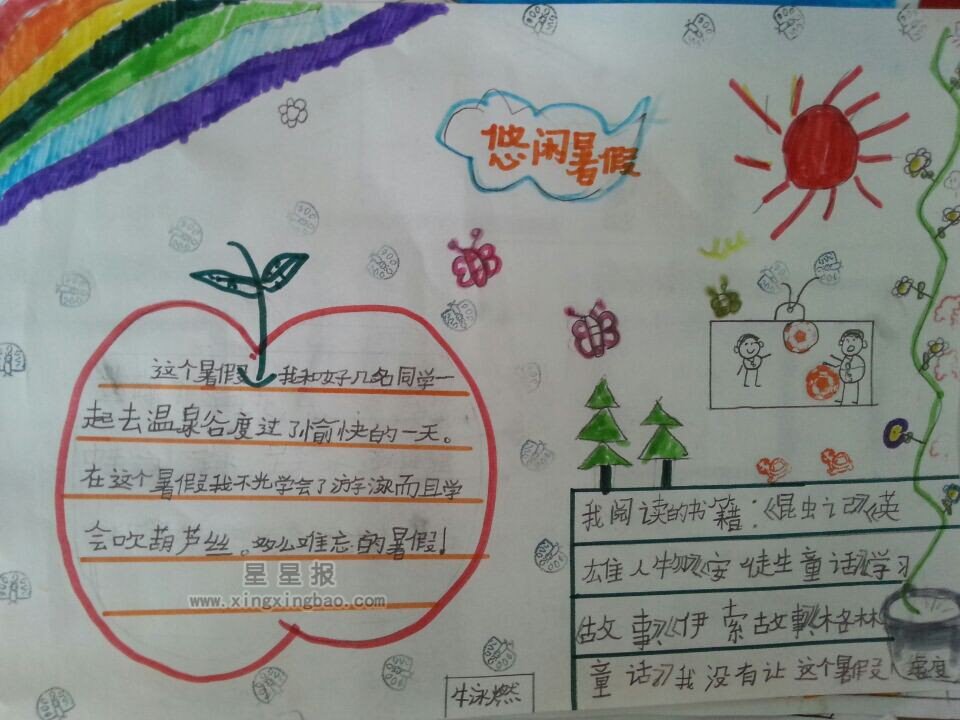 悠闲暑假
这个暑假，我和好几名同学一
起去温泉谷度过了愉快的一天。
在这个暑假我不光学会了游泳而且学
会吹葫芦丝。多么难忘的暑假！
星星报
www.xingxingbao.com
我阅读的书籍：《昆虫记》《英
雄人物》《安徒生童话》《学习
故事》《伊索故事》《格林
童话》我没有让这个暑假虚度
牛泳燃